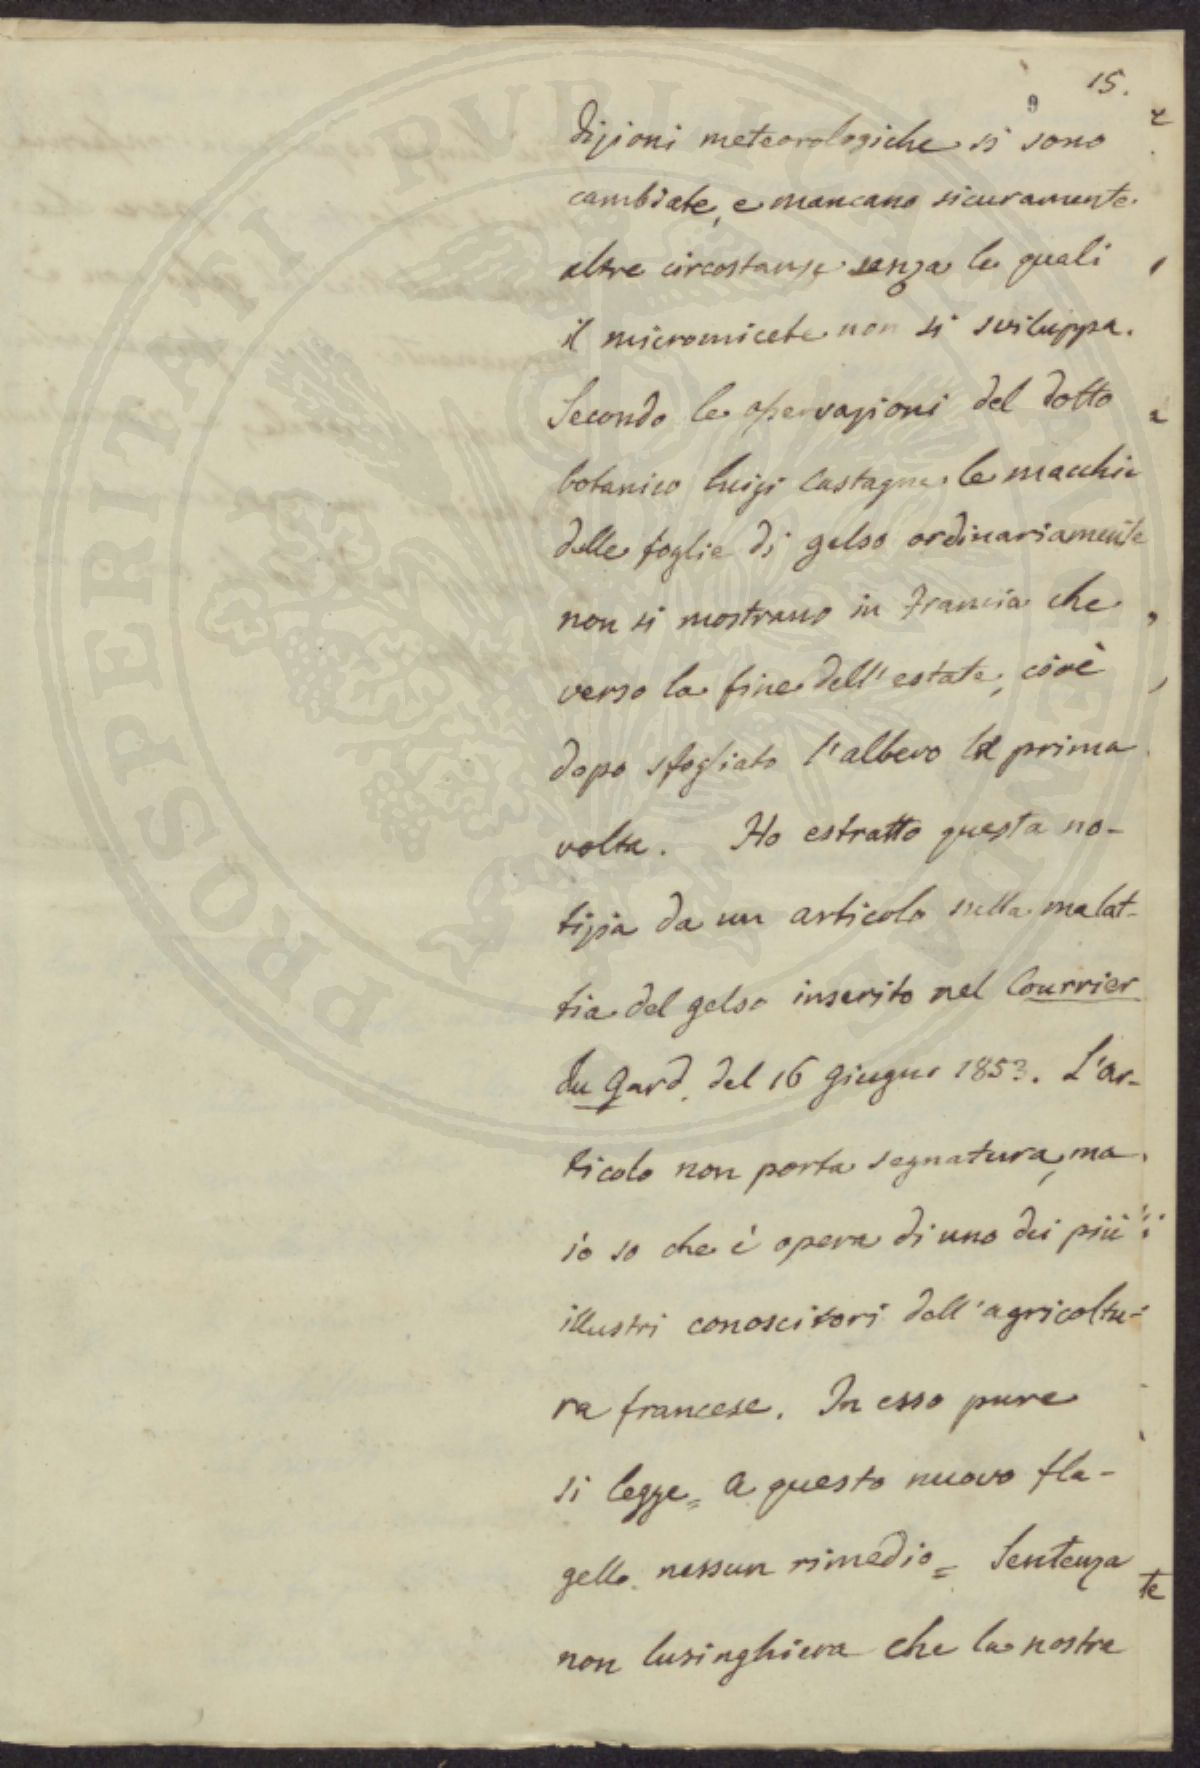 15.
9
dizioni meteorologiche si sono
cambiate, e mancano sicuramente
altre circostanze senza le quali
il micromicete non si sviluppa.
Secondo le osservazioni del dotto
botanico luigi Castagne le macchie
delle foglie di gelso ordinariamente
non si mostrano in Francia che
verso la fine dell'estate, cioè
dopo sfogliato l'albero la prima
volta. Ho estratto questa no-
tizia da un articolo sulla malat-
tia del gelso inserito nel Courrier
du Gard, del 16 giugno 1853. L'ar-
ticolo non porta segnatura, ma
io so che è opera di uno dei più
illustri conoscitori dell'agricoltu-
ra francese. In esso pure
si legge = a questo nuovo fla-
gello nessun rimedio = Sentenza
non lusinghiera che la nostra
te
PROSPERITATI PUBLICAE AUGENDAE